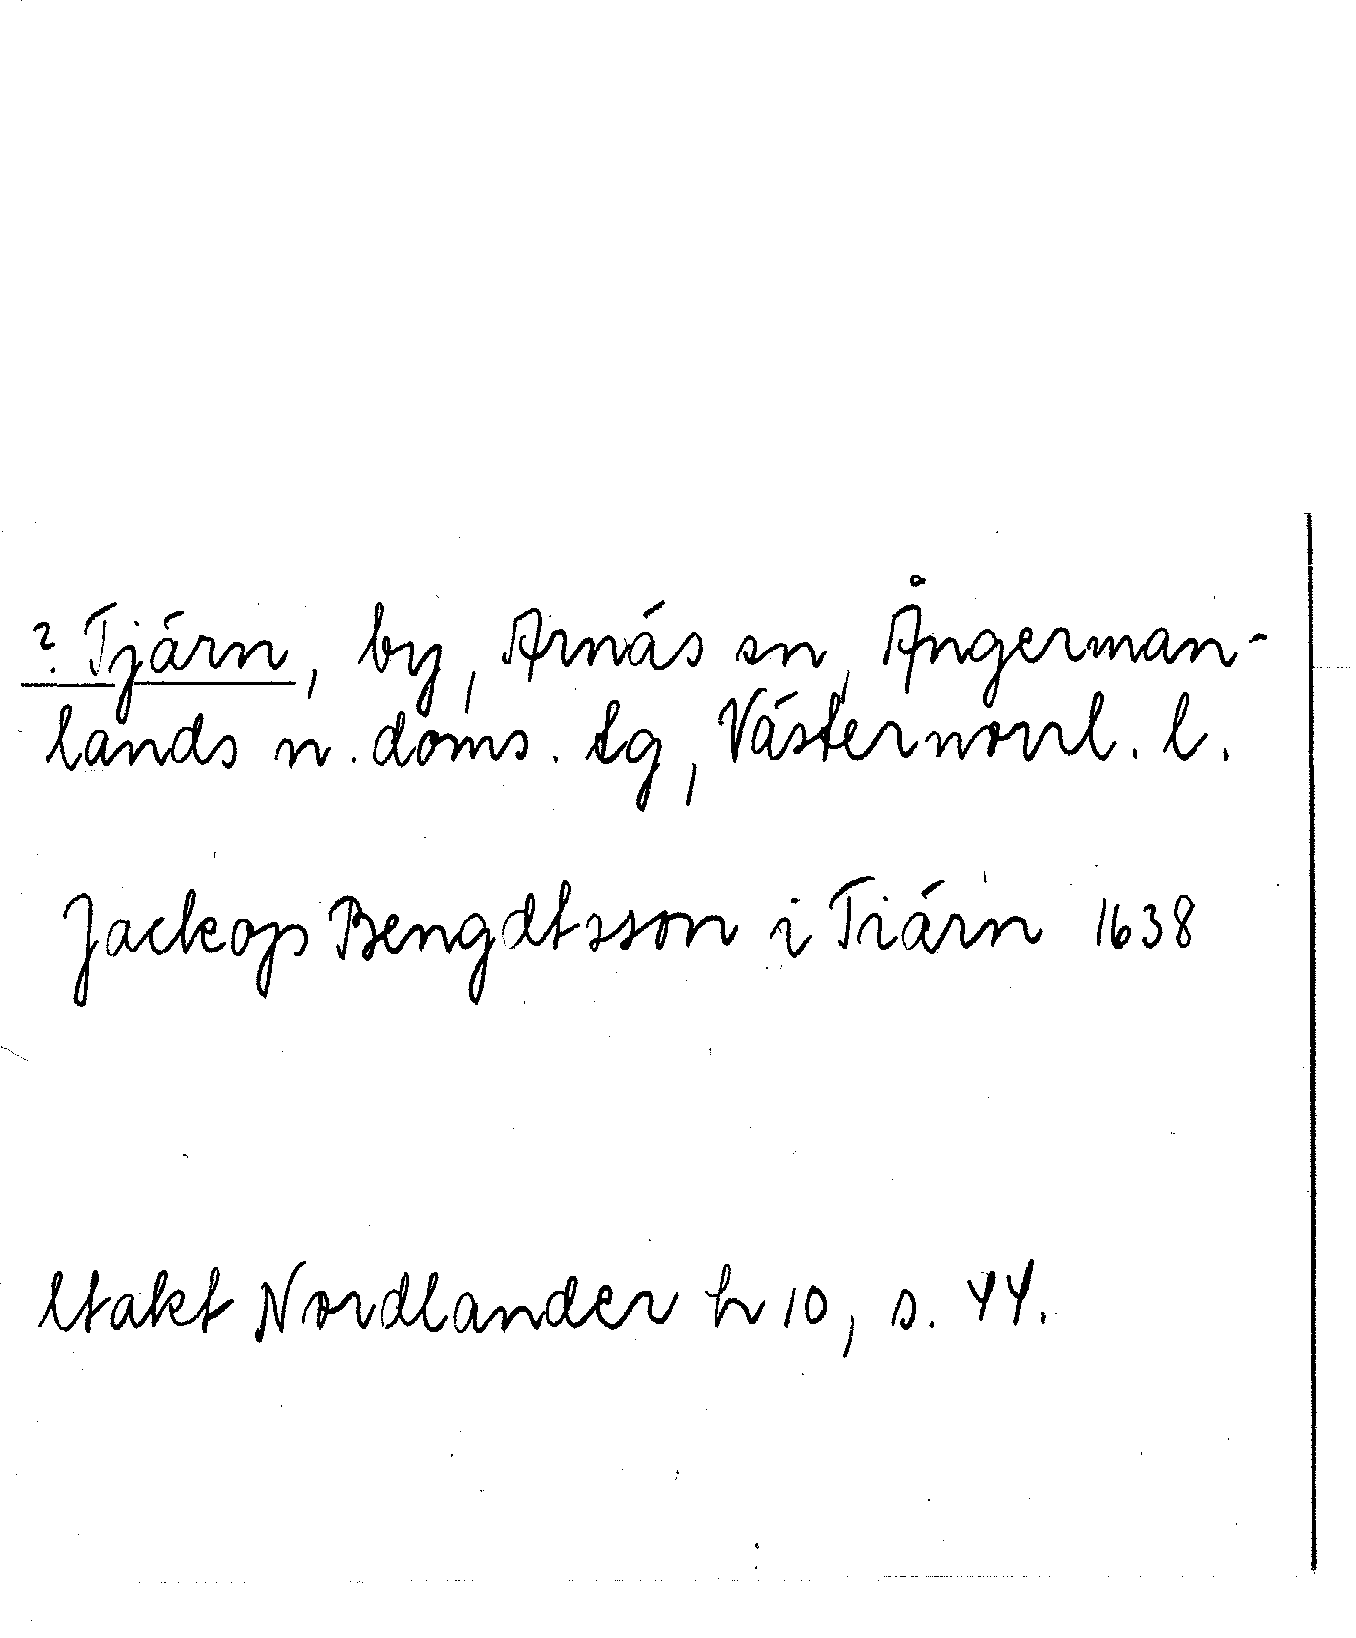 ? Tjärn, by, Arnäs sn, Ångerman-
lands n. doms. tg, Västernorrl. l.
Jackops Bengdtsson i Tiärn 1638
Utakt Nordlander h 10, s. 44.